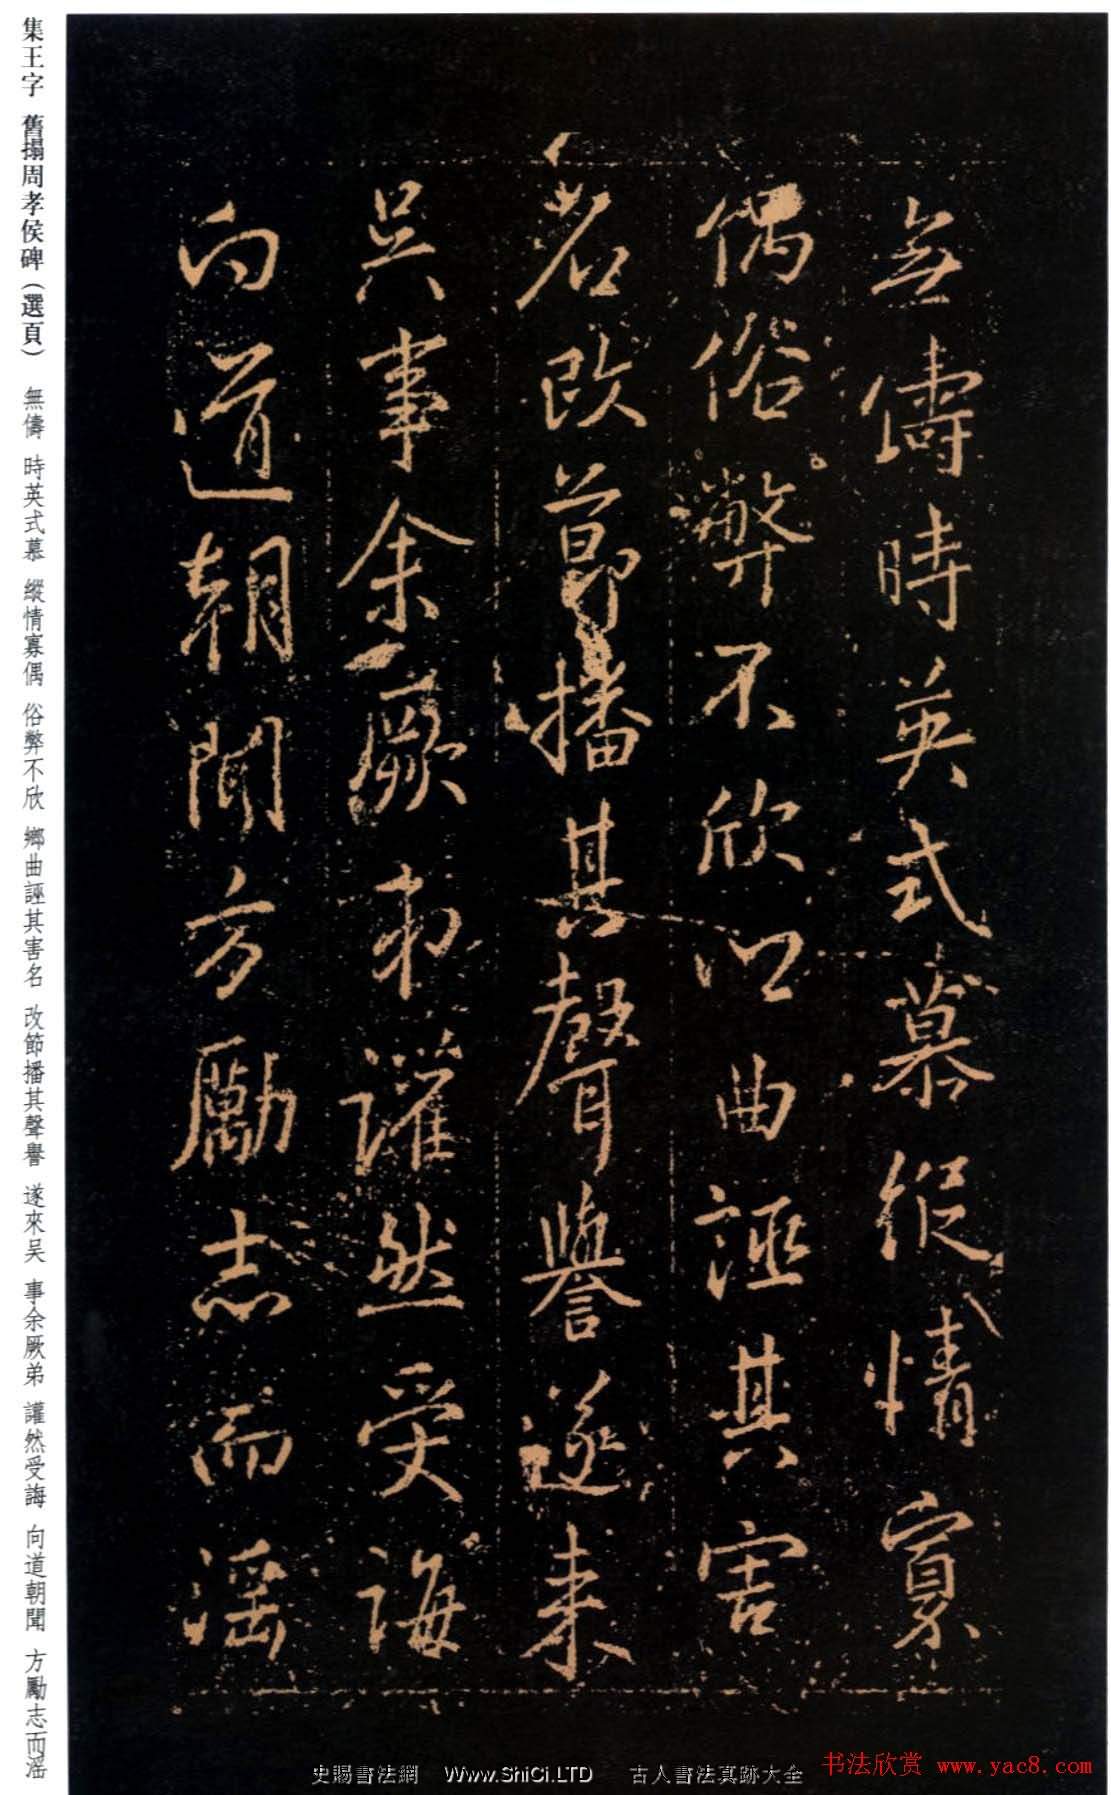 無儔時英式慕縱情寡
偶俗弊不欣鄉曲誣其害
名改節播其聲譽遂来
吴事余厥弟讙然受誨
向道朝聞方勵志而滛
集王字 舊搨周孝侯碑（選頁） 無儔 時英式慕 縱情寡偶 俗弊不欣 鄉曲誣其害名 改節播其聲譽 遂來吴 事余厥弟 讙然受誨 向道朝聞 方勵志而滛
史賜書法網 Www.ShiCi.LTD 古人書法真跡大全
书法欣赏 www.yac8.com